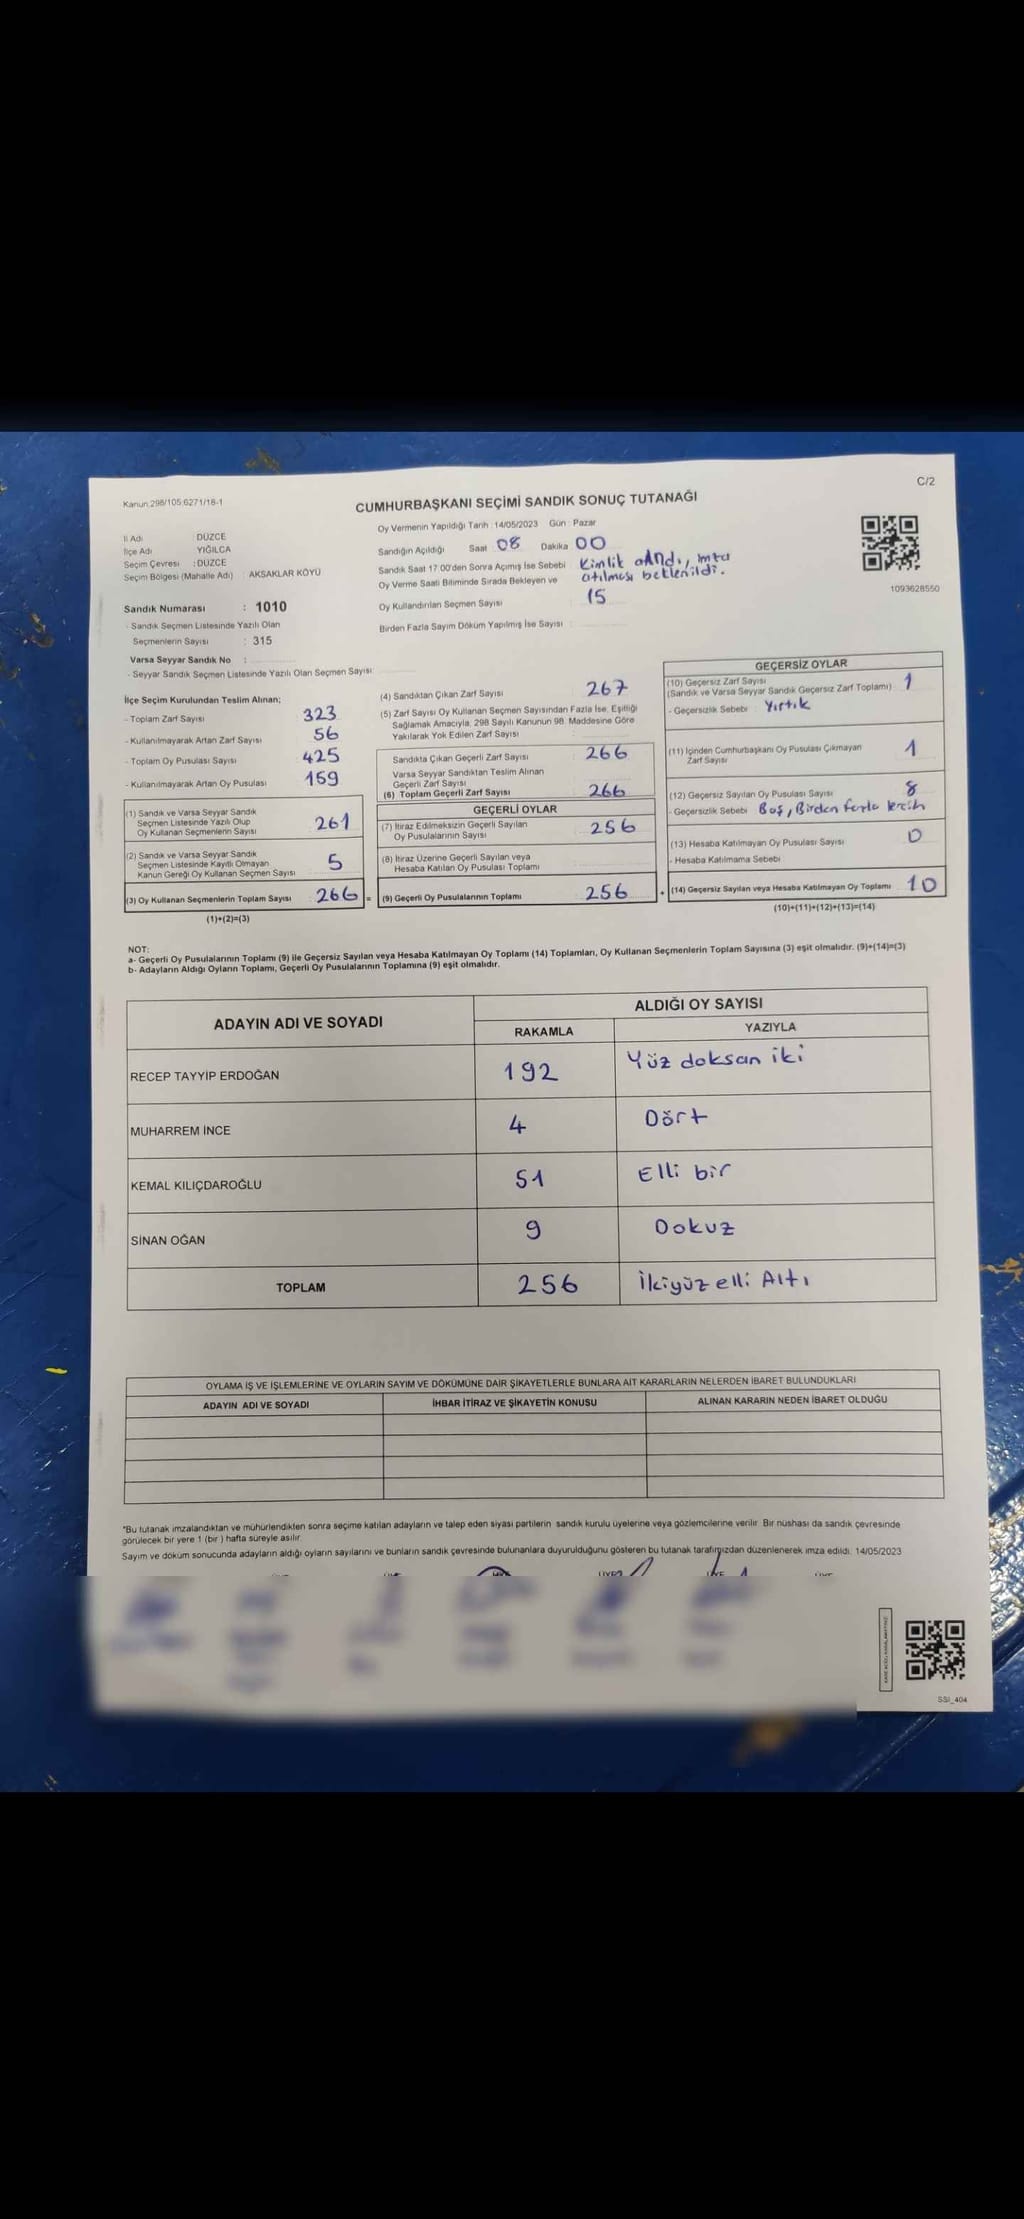 C/2
Kanun 298/105;6271/18-1
CUMHURBAŞKANI SEÇİMİ SANDIK SONUÇ TUTANAĞI
İl Adı DÜZCE
İlçe Adı YIĞILCA
Seçim Çevresi : DÜZCE
Seçim Bölgesi (Mahalle Adı) : AKSAKLAR KÖYÜ
Sandık Numarası : 1010
- Sandık Seçmen Listesinde Yazılı Olan
Seçmenlerin Sayısı : 315
Varsa Seyyar Sandık No :
- Seyyar Sandık Seçmen Listesinde Yazılı Olan Seçmen Sayısı:
Oy Vermenin Yapıldığı Tarih : 14/05/2023 Gün : Pazar
Sandığın Açıldığı Saat 08 Dakika 00
Sandık Saat 17:00'den Sonra Açılmış İse Sebebi Kimlik
Oy Verme Saati Bitiminde Sırada Bekleyen ve atılması beklenildi.
Oy Kullandırılan Seçmen Sayısı : 15
Birden Fazla Sayım Döküm Yapılmış İse Sayısı :
1093628550
İlçe Seçim Kurulundan Teslim Alınan;
- Toplam Zarf Sayısı 323
- Kullanılmayarak Artan Zarf Sayısı 56
- Toplam Oy Pusulası Sayısı 425
- Kullanılmayarak Artan Oy Pusulası 159
(1) Sandık ve Varsa Seyyar Sandık
Seçmen Listesinde Yazılı Olup
Oy Kullanan Seçmenlerin Sayısı : 261
(2) Sandık ve Varsa Seyyar Sandık
Seçmen Listesinde Kayıtlı Olmayan
Kanun Gereği Oy Kullanan Seçmen Sayısı : 5
(3) Oy Kullanan Seçmenlerin Toplam Sayısı : 266 =
(1)+(2)=(3)
(4) Sandıktan Çıkan Zarf Sayısı : 267
(5) Zarf Sayısı Oy Kullanan Seçmen Sayısından Fazla İse, Eşitliği
Sağlamak Amacıyla, 298 Sayılı Kanunun 98. Maddesine Göre
Yakılarak Yok Edilen Zarf Sayısı :
Sandıkta Çıkan Geçerli Zarf Sayısı : 266
Varsa Seyyar Sandıktan Teslim Alınan
Geçerli Zarf Sayısı
(6) Toplam Geçerli Zarf Sayısı : 266
GEÇERLİ OYLAR
(7) İtiraz Edilmeksizin Geçerli Sayılan
Oy Pusulalarının Sayısı : 256
(8) İtiraz Üzerine Geçerli Sayılan veya
Hesaba Katılan Oy Pusulası Toplamı
(9) Geçerli Oy Pusulalarının Toplamı : 256 +
GEÇERSİZ OYLAR
(10) Geçersiz Zarf Sayısı
(Sandık ve Varsa Seyyar Sandık Geçersiz Zarf Toplamı) : 1
- Geçersizlik Sebebi : Yırtık
(11) İçinden Cumhurbaşkanı Oy Pusulası Çıkmayan
Zarf Sayısı : 1
(12) Geçersiz Sayılan Oy Pusulası Sayısı : 8
- Geçersizlik Sebebi Boş, Birden fazla tercih
(13) Hesaba Katılmayan Oy Pusulası Sayısı : 0
- Hesaba Katılmama Sebebi
(14) Geçersiz Sayılan veya Hesaba Katılmayan Oy Toplamı : 10
(10)+(11)+(12)+(13)=(14)
NOT:
a- Geçerli Oy Pusulalarının Toplamı (9) ile Geçersiz Sayılan veya Hesaba Katılmayan Oy Toplamı (14) Toplamları, Oy Kullanan Seçmenlerin Toplam Sayısına (3) eşit olmalıdır. (9)+(14)=(3)
b- Adayların Aldığı Oyların Toplamı, Geçerli Oy Pusulalarının Toplamına (9) eşit olmalıdır.
ADAYIN ADI VE SOYADI ALDIĞI OY SAYISI
RAKAMLA YAZIYLA
RECEP TAYYİP ERDOĞAN 192 Yüz doksan iki
MUHARREM İNCE 4 Dört
KEMAL KILIÇDAROĞLU 51 Elli bir
SİNAN OĞAN 9 Dokuz
TOPLAM 256 İkiyüz elli Altı
OYLAMA İŞ VE İŞLEMLERİNE VE OYLARIN SAYIM VE DÖKÜMÜNE DAİR ŞİKAYETLERLE BUNLARA AİT KARARLARIN NELERDEN İBARET BULUNDUKLARI
ADAYIN ADI VE SOYADI İHBAR İTİRAZ VE ŞİKAYETİN KONUSU ALINAN KARARIN NEDEN İBARET OLDUĞU
*Bu tutanak imzalandıktan ve mühürlendikten sonra seçime katılan adayların ve talep eden siyasi partilerin sandık kurulu üyelerine veya gözlemcilerine verilir. Bir nüshası da sandık çevresinde
görülecek bir yere 1 (bir) hafta süreyle asılır.
Sayım ve döküm sonucunda adayların aldığı oyların sayılarını ve bunların sandık çevresinde bulunanlara duyurulduğunu gösteren bu tutanak tarafımızdan düzenlenerek imza edildi. 14/05/2023
SSİ_404